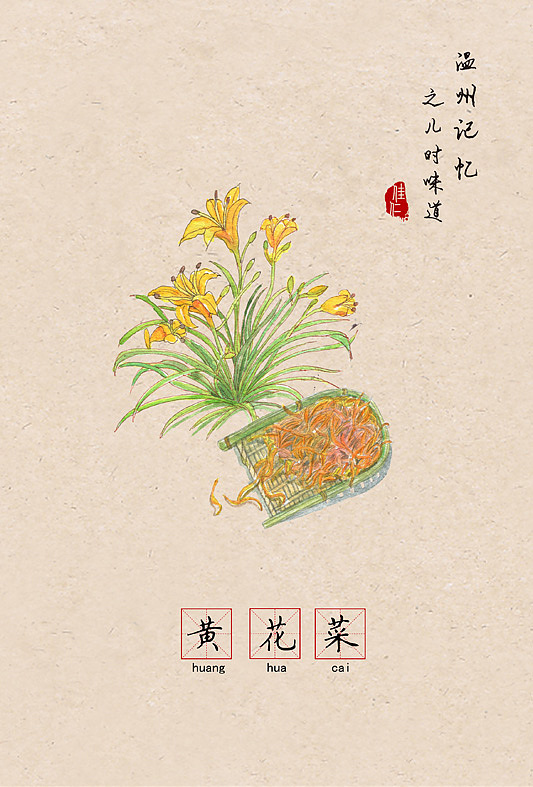 温州记忆
之儿时味道
佳仁
黄花菜
huang hua cai